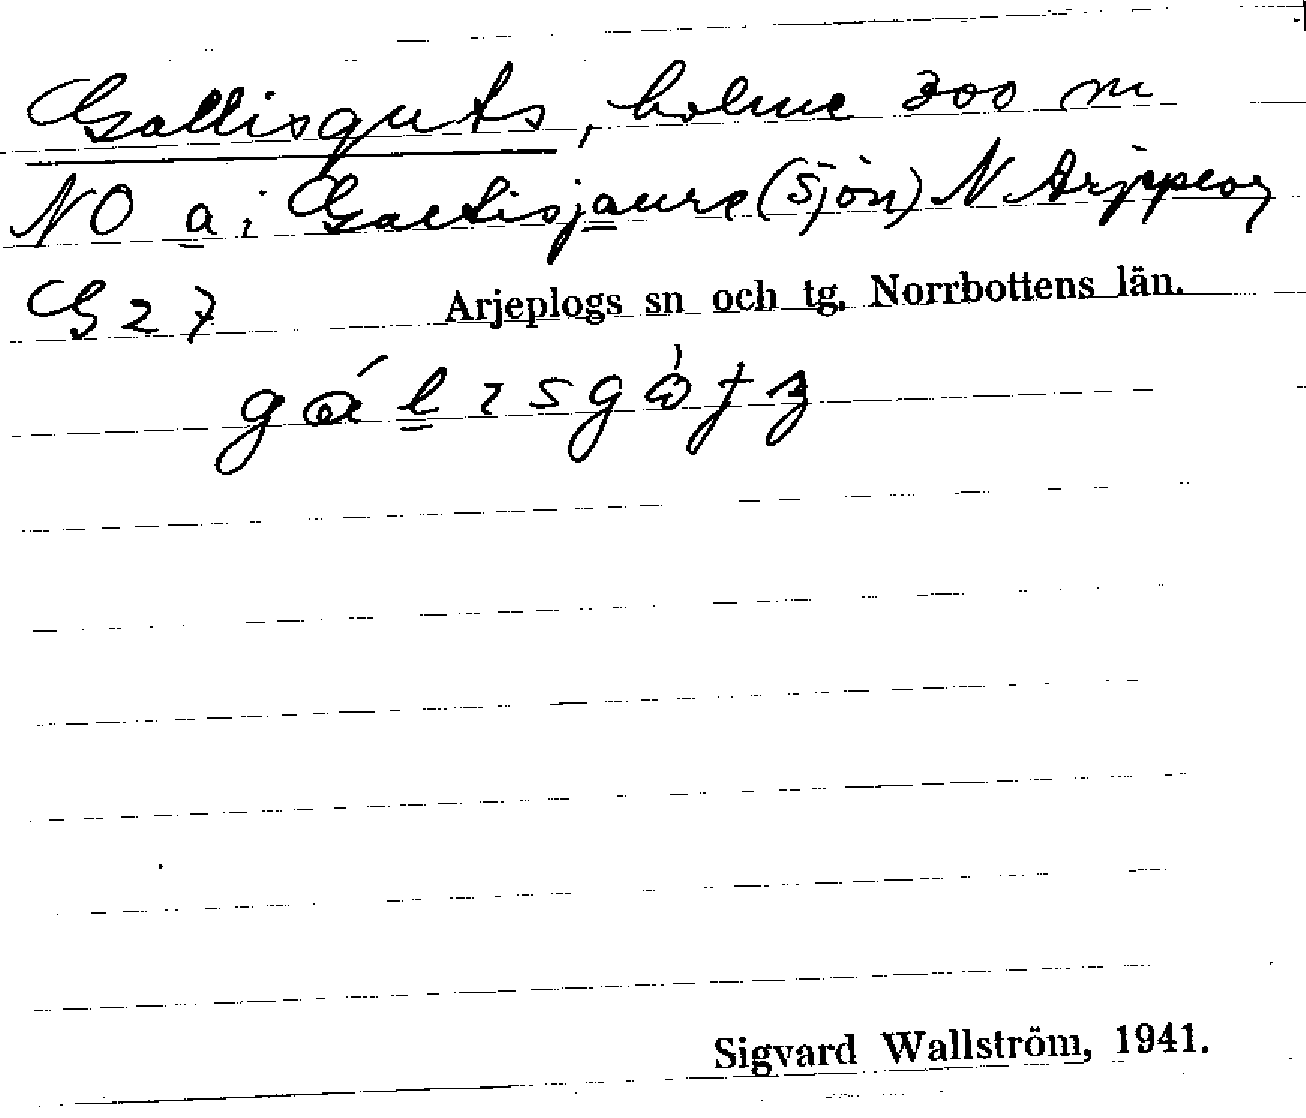 Gallisguts, holme 300 m
NO a i Galtisjaure (sjön) N Arjeplog
G 27 Arjeplogs sn och tg. Norrbottens län.
Sigvard Wallström, 1941.